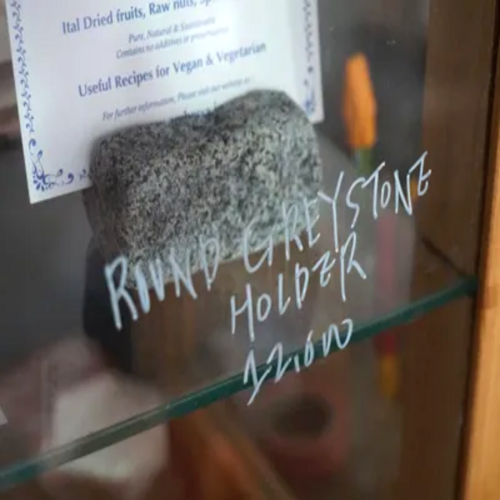 Ital Dried fruits, Raw nuts,
Pure, Natural & Sustainable
Contains no additives or preservatives
Useful Recipes for Vegan & Vegetarian
For further information, Please visit our website
ROUND GREYSTONE
HOLDER